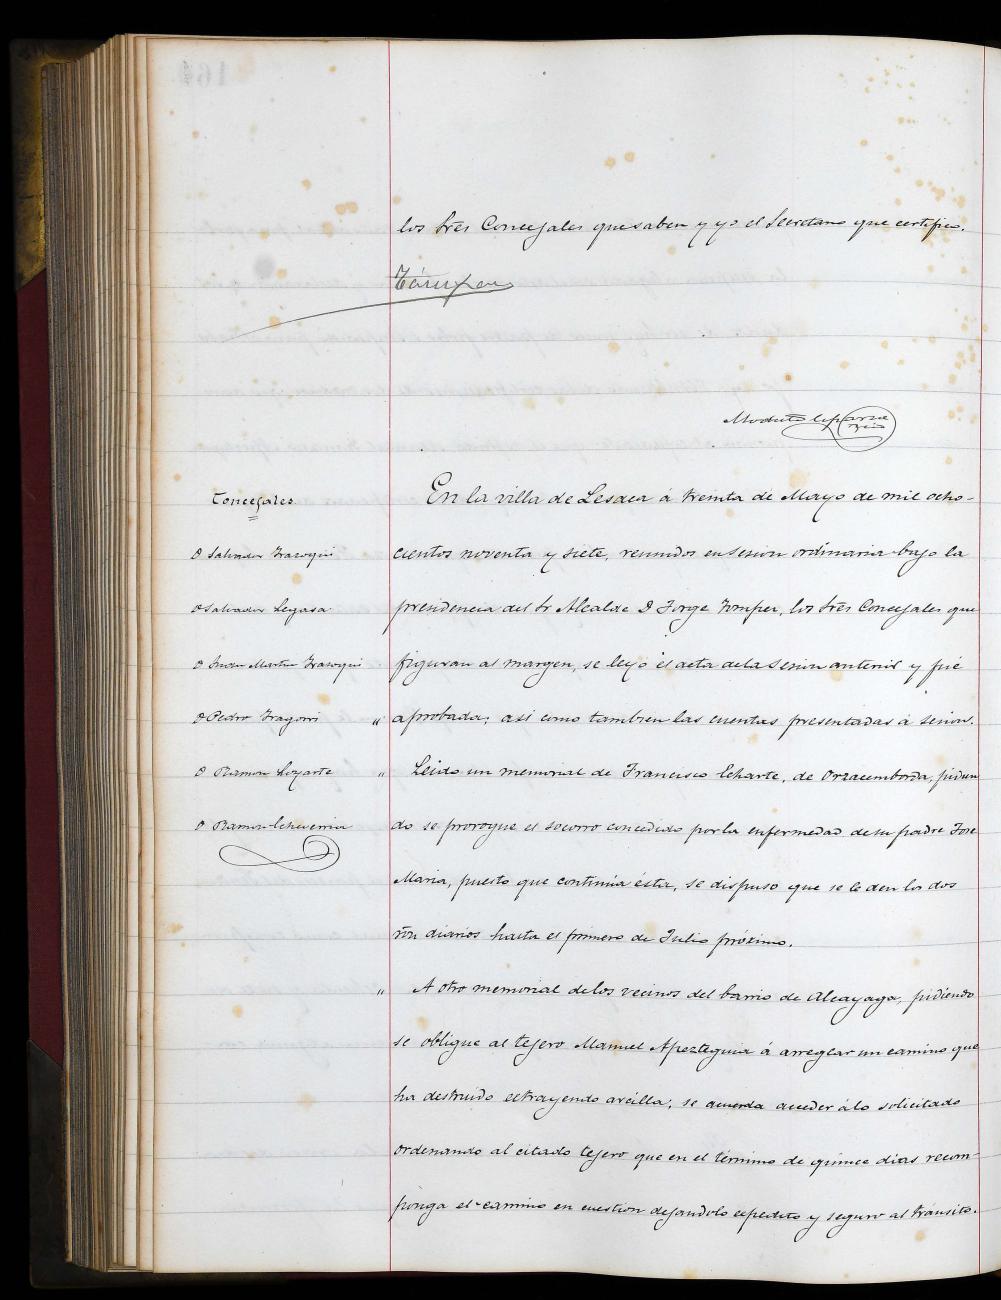 los tres Concejales que saben y yo el Secretario que certifico.
Modesto Leparza
Concejales
D Salvador Irazoqui
D Salvador Legasa
D Juan Martin Irazoqui
D Pedro Iragorri
D Ramon Loyarte
D Ramon Echeverria
En la villa de Lesaca á treinta de Mayo de mil ocho-
cientos noventa y siete, reunidos en sesion ordinaria bajo la
presidencia del Sr Alcalde D Jorge los tres Concejales que
figuran al margen, se leyó el acta de la sesion anterior y fué
aprobada, asi como tambien las cuentas presentadas á sesion.
" Leido un memorial de Francisco Echarte, de Orzacemborda, pidien
do se prorogue el socorro concedido por la enfermedad de su padre Jose
Maria, puesto que continúa ésta, se dispuso que se le den los dos
rón diarios hasta el primero de Julio próximo.
" A otro memorial de los vecinos del barrio de Alcayaga, pidiendo
se obligue al tejero Manuel Apezteguia á arreglar un camino que
ha destruido estrayendo arcilla, se acuerda acceder á lo solicitado
ordenando al citado tejero que en el término de quince dias recom-
ponga el camino en cuestion dejandolo espedito y seguro al tránsito.